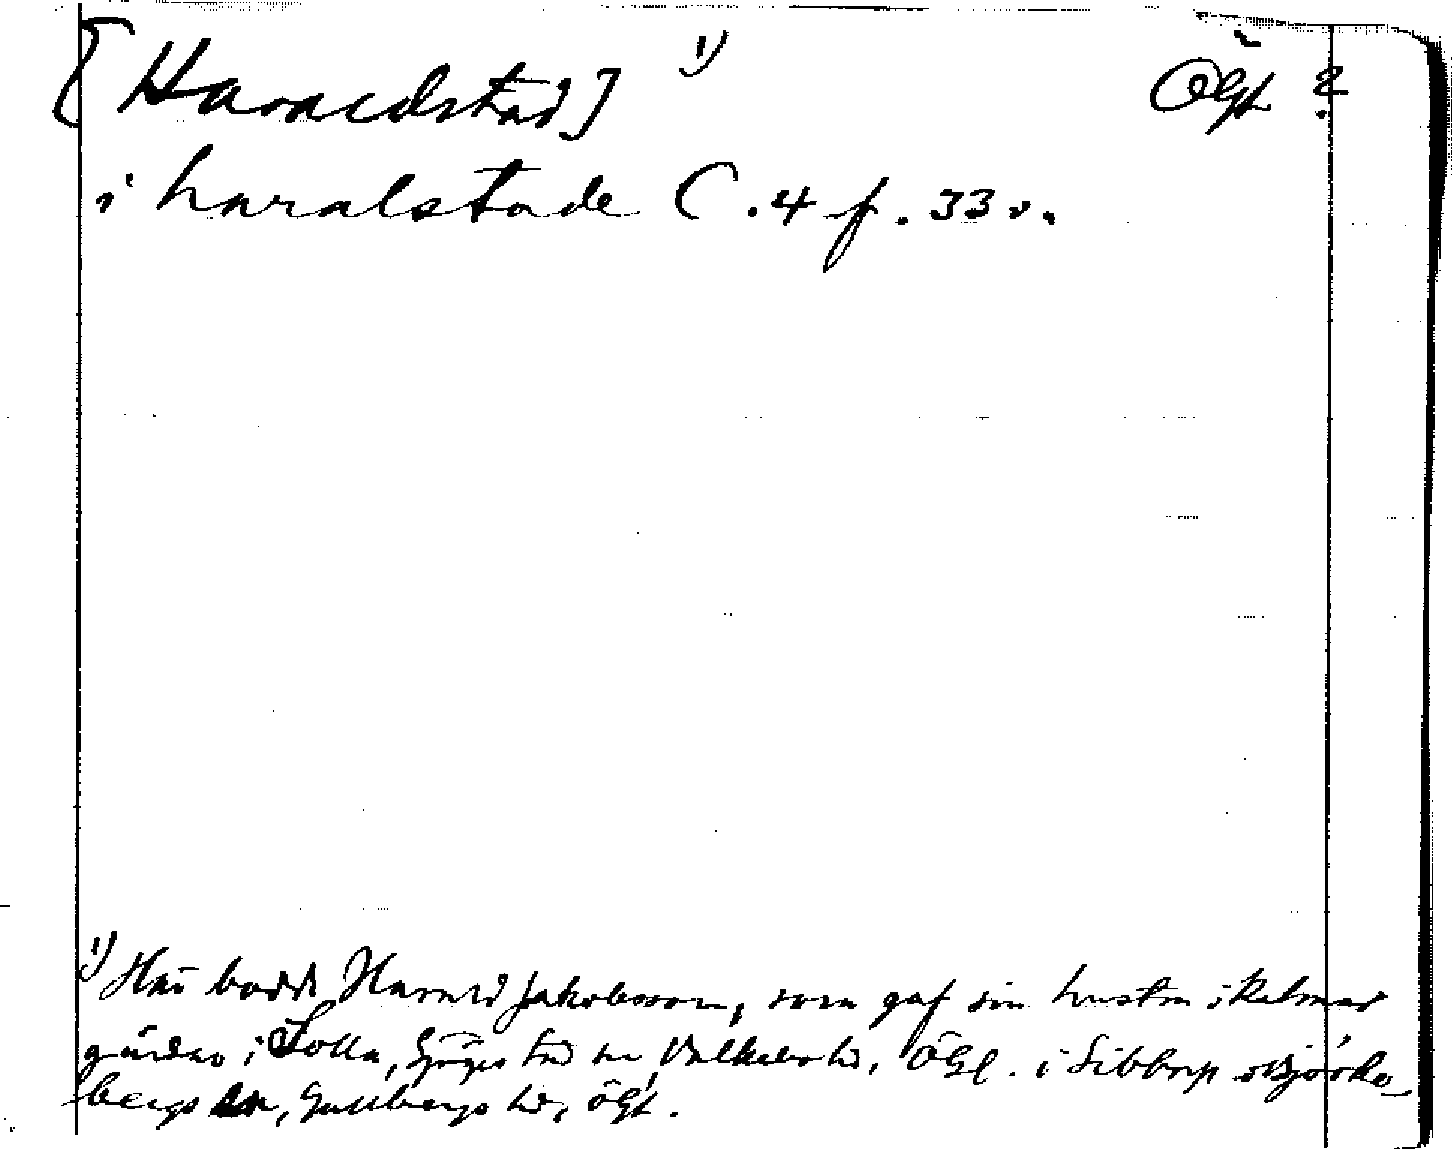 [Haraldstad] 1) Ögl ?
i haralstade C. 4 f. 33 v.
1) Här bodde Harald Jakobsson, som gaf sin hustru i Kalmar
gårdar i Solla, sn, Valkebo hd, Ögl. i Sibborp Björke-
bergs sn, Gullbergs hd, ögl.